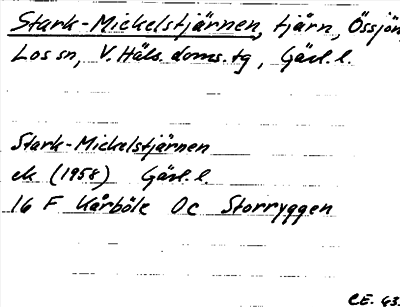 Stark-Mickelstjärnen, tjärn, Össjön
Los sn, V. Häls. doms. tg, Gävl. l.
Stark-Mickelstjärnen
ek (1958) Gävl. l.
16 F Kårböle 0c Storryggen
CE. 63.